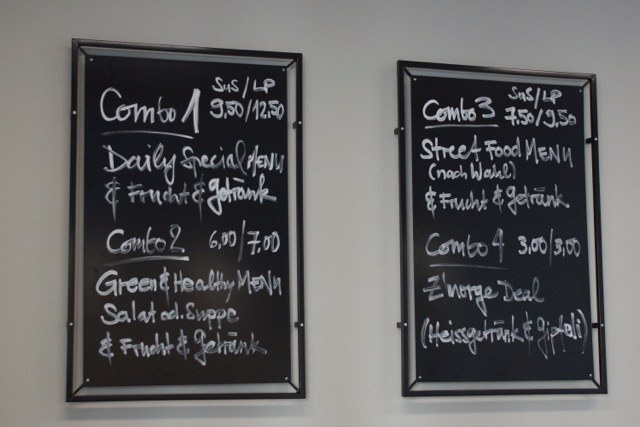 SuS/LP
Combo 1 9,50/12,50
Daily Special MENU
& Frucht & getränk
Combo 2 6,00/7,00
Green & Healthy MENU
Salat od. Suppe
& Frucht & getränk
SuS/LP
Combo 3 7,50/9,50
Street Food MENU
(nach Wahl)
& Frucht & getränk
Combo 4 3,00/3,00
Z'norge Deal
(Heissgetränk & Gipfeli)